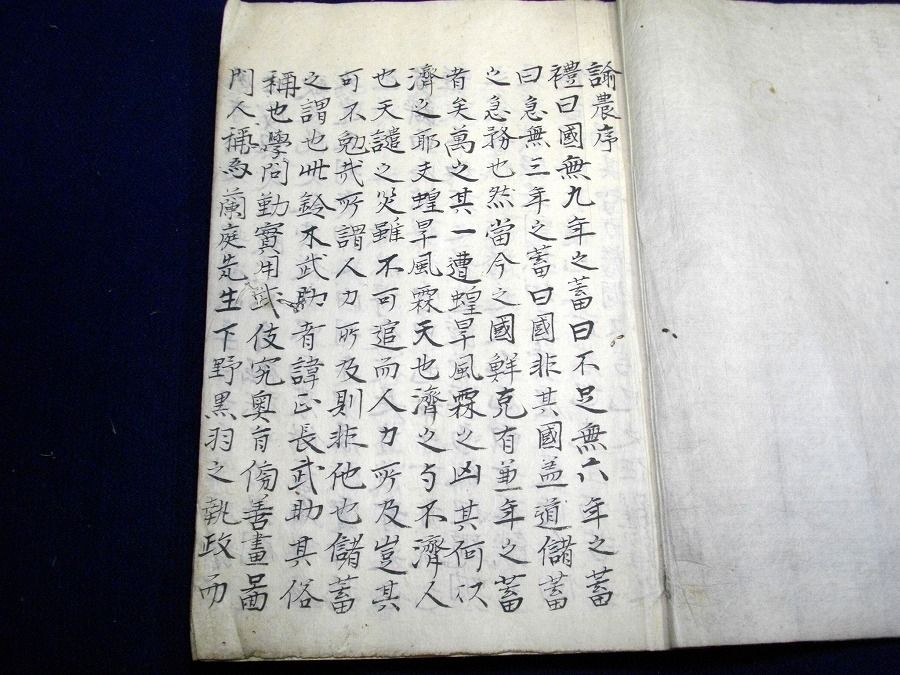 諭農序
禮曰國無九年之蓄曰不足無六年之蓄
曰急無三年之蓄曰國非其國盖道儲蓄
之急務也然當今之國鮮克有兼年之蓄
者矣萬之其一遭蝗旱風霖之凶其何以
濟之耶夫蝗旱風霖天也濟之与不濟人
也天譴之災雖不可追而人力所及豈其
可不勉哉所謂人力所及則非他也儲蓄
之謂也此鈴木武助者諱正長武助其俗
稱也學問勤實用武伎究奥旨傍善畫啚
門人稱為蘭庭先生下野黒羽之執政而